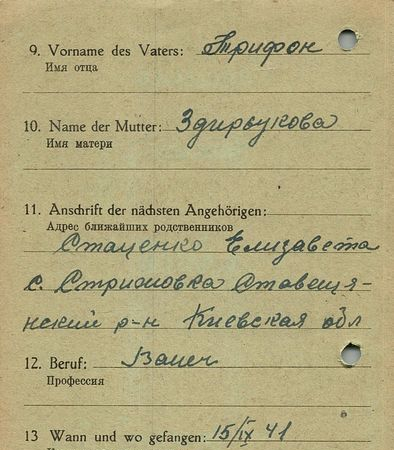 9. Vorname des Vaters: Трифон
Имя отца
10. Name der Mutter: Здирвукова
Имя матери
11. Anschrift der nächsten Angehörigen:
Адрес ближайших родственников
Стаценко Елизавета
с. Стрижовка Ставещя-
нский р-н Киевская обл
12. Beruf:
Профессия
13 Wann und wo gefangen: 15/IX 41